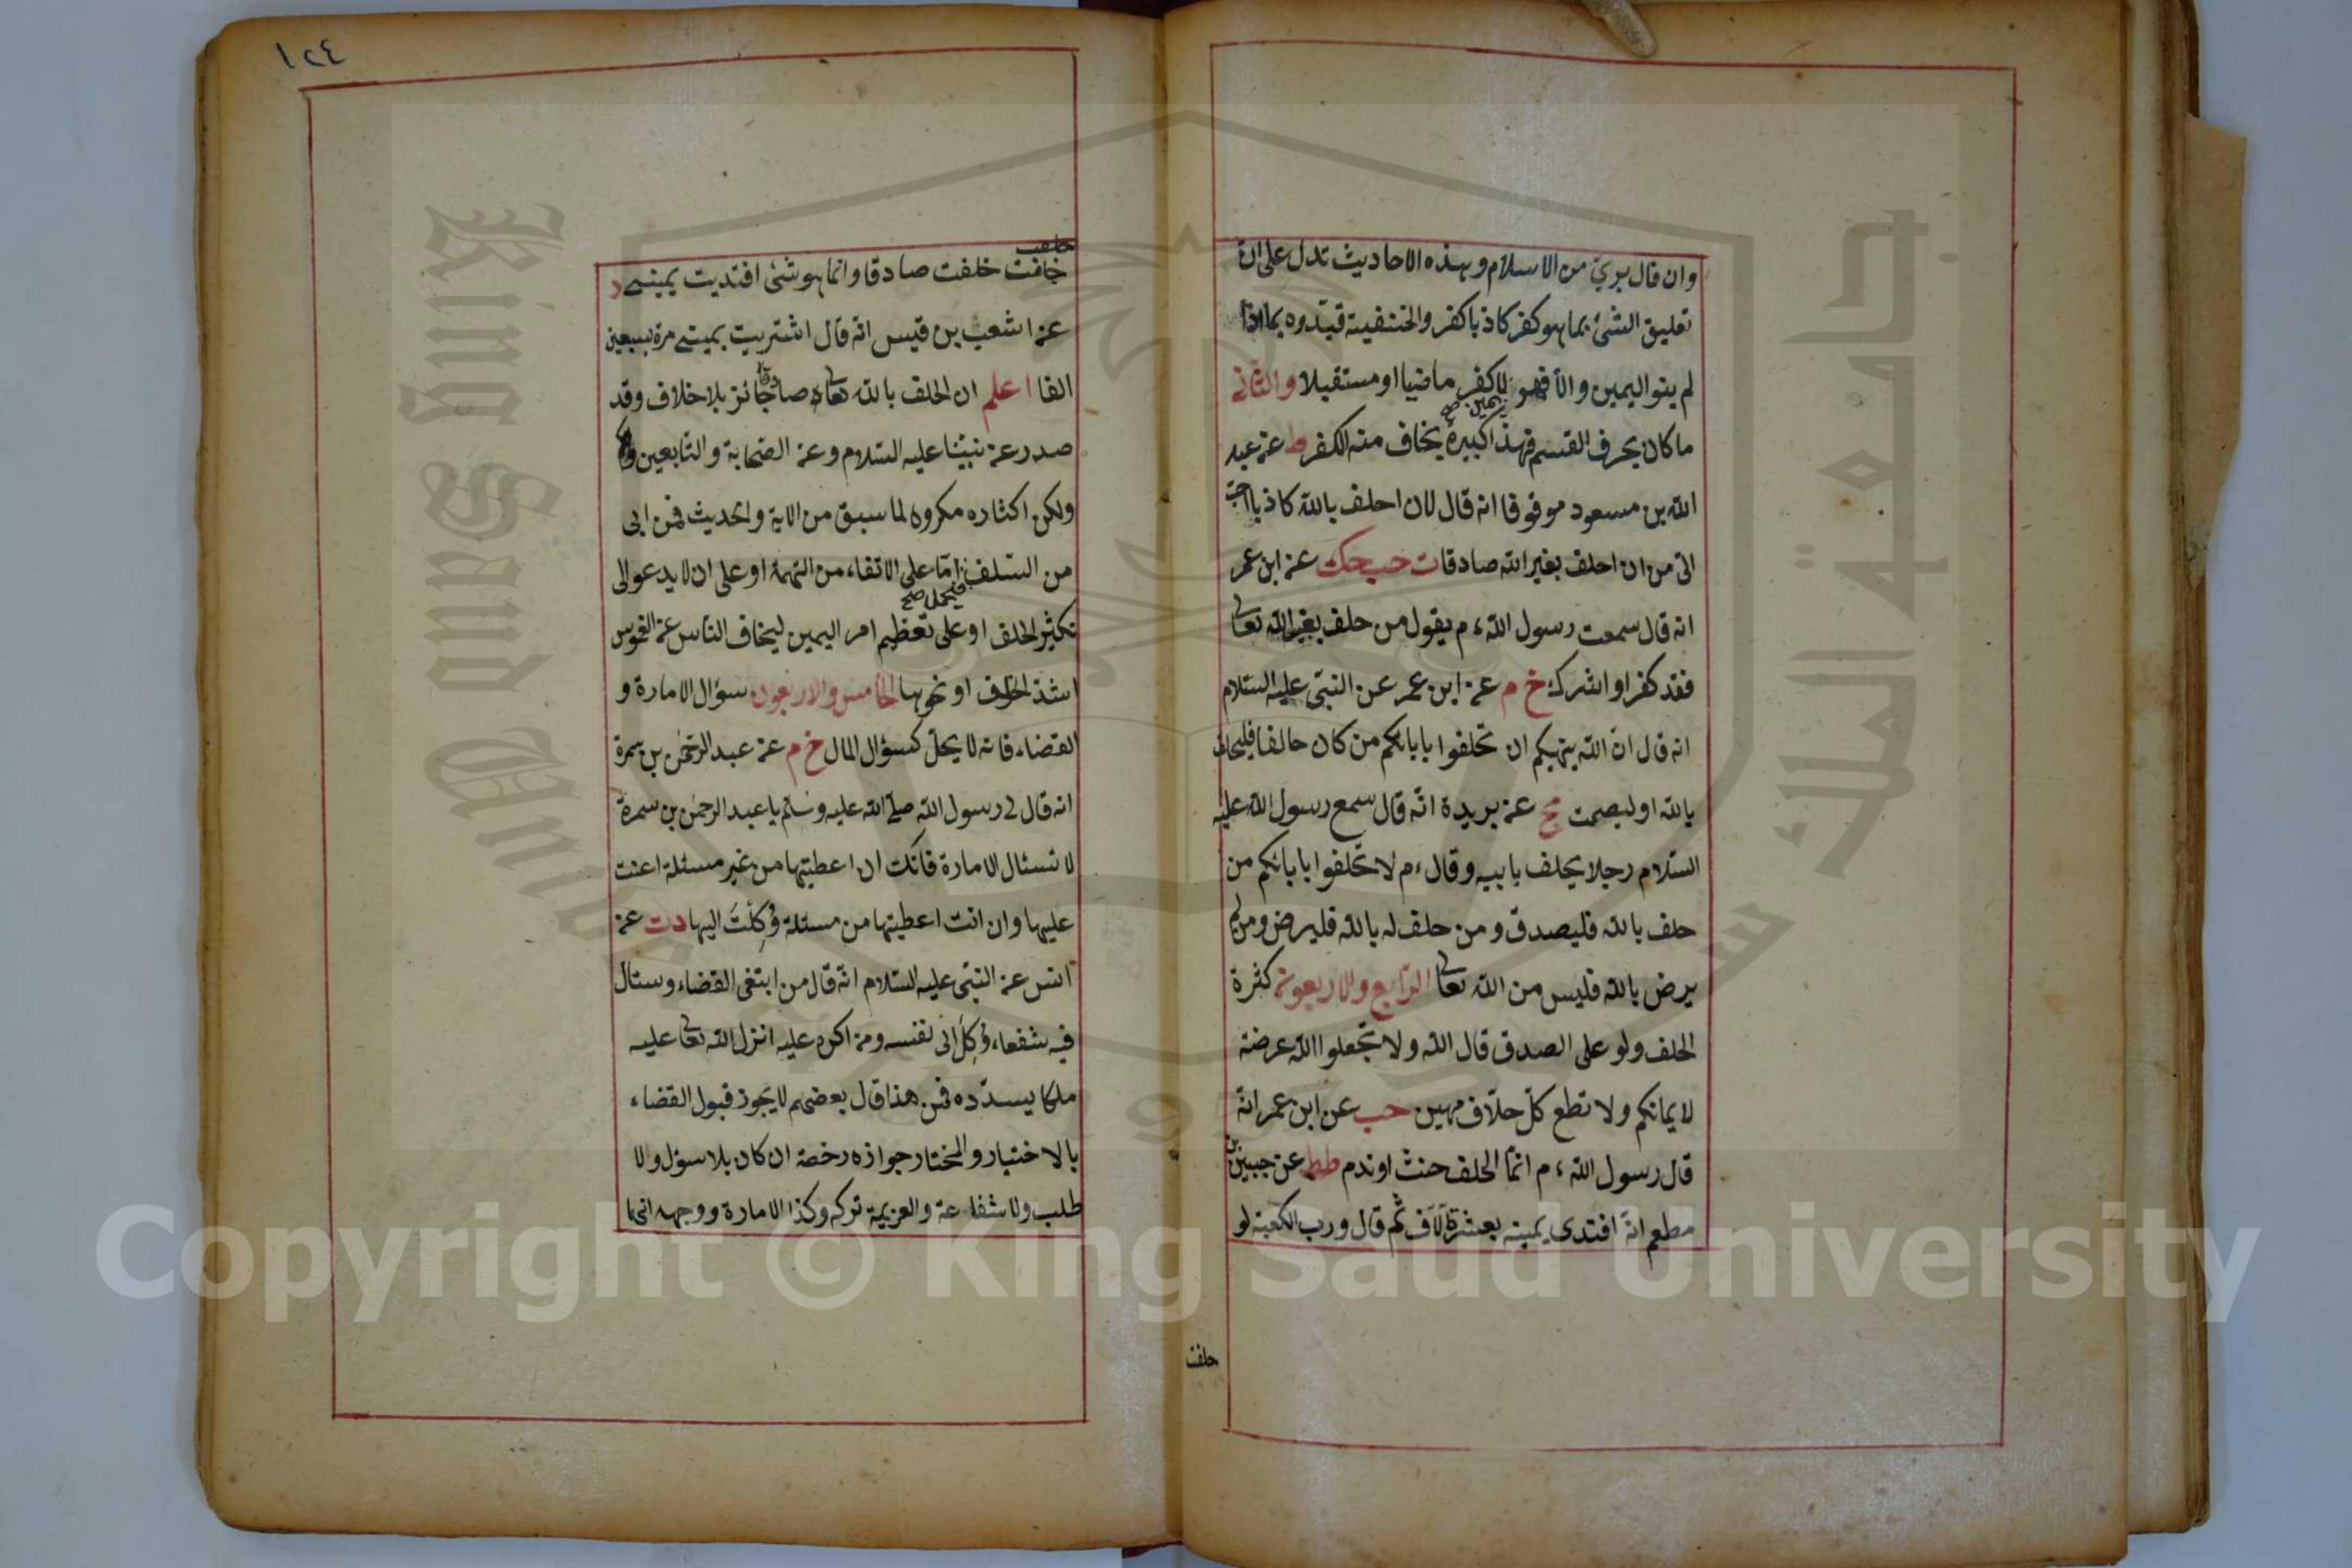 وان قال بريء من الاسلام وهذه الاحاديث تدل على ان
تعليق الشئ بما هو كفر كاذبا كفر والحنفية قيدوه بما اذا
لم ينو اليمين والا فهو يمين صح لا كفر ماضيا او مستقبلا والثاني
ما كان بحرف القسم فهذا كبيرة يخاف منه الكفر ط عن عبد
الله بن مسعود موقوفا انه قال لان احلف بالله كاذبا احب
الى من ان احلف بغير الله صادقا ت حب حك عن ابن عمر
انه قال سمعت رسول الله ء م يقول من حلف بغير الله تعالى
فقد كفر او اشرك خ م عن ابن عمر عن النبى عليه السلام
انه قال ان الله ينهيكم ان تحلفوا بابائكم من كان حالفا فليحلف
بالله او ليصمت مج عن بريدة انه قال سمع رسول الله عليه
السلام رجلا يحلف بابيه وقال ء م لا تحلفوا بابائكم من
حلف بالله فليصدق ومن حلف له بالله فليرض ومن لم
يرض بالله فليس من الله تعالى الرابع والاربعون كثرة
الحلف ولو على الصدق قال الله ولا تجعلوا الله عرضة
لايمانكم ولا تطع كل حلاف مهين حب عن ابن عمر انه
قال رسول الله ء م انما الحلف حنث او ندم طط عن جبير بن
مطعم انه افتدى يمينه بعشرة آلاف ثم قال ورب الكعبة لو
حلفت
١٢٤
حلفت
حلفت صادقا وانما هو شئ افتديت يمينى د
عن اشعب بن قيس انه قال اشتريت يمينى مرة بسبعين
الفا اعلم ان الحلف بالله تعالى صادقا جائز بلا خلاف وقد
صدر عن نبينا عليه السلام وعن الصحابة والتابعين
ولكن اكثاره مكروه لما سبق من الاية والحديث فمن ابى
من السلف فيحمل صح اما على الاتقاء من التهمة او على ان لا يدعو الى
تكثير الحلف او على تعظيم امر اليمين ليخاف الناس عن الغموس
اشد الخوف او نحوها الخامس والاربعون سؤال الامارة و
القضاء فانه لا يحل كسؤال المال خ م عن عبد الرحمن بن سمرة
انه قال لى رسول الله صلى الله عليه وسلم يا عبد الرحمن بن سمرة
لا تسئال الامارة فانك ان اعطيتها من غير مسئلة اعنت
عليها وان انت اعطيتها من مسئلة وُكِلْتَ اليها د ت عن
انس عن النبى عليه السلام انه قال من ابتغى القضاء وسئال
فيه شفعاء وُكِلَ الى نفسه ومن اكره عليه انزل الله تعالى عليه
ملكا يسدده فمن هذا قال بعضهم لا يجوز قبول القضاء
بالاختيار والمختار جوازه رخصة ان كان بلا سؤل ولا
طلب ولا شفاعة والعزيمة تركه وكذا الامارة ووجهه انهما
Copyright © King Saud University